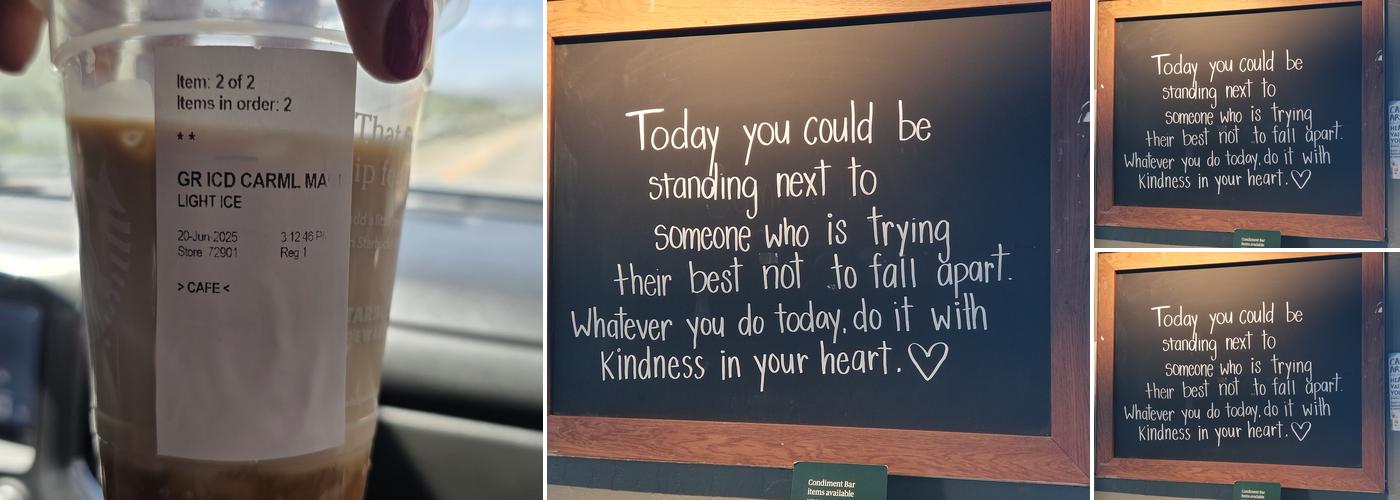 Item: 2 of 2
Items in order: 2
**
GR ICD CARML MA
LIGHT ICE
20-Jun-2025 3:12:46 P
Store 72901 Reg 1
> CAFE <
That
Today you could be
standing next to
someone who is trying
their best not to fall apart.
Whatever you do today, do it with
Kindness in your heart. ♡
Condiment Bar
items available
Today you could be
standing next to
someone who is trying
their best not to fall apart.
Whatever you do today, do it with
Kindness in your heart. ♡
Condiment Bar
items available
Today you could be
standing next to
someone who is trying
their best not to fall apart.
Whatever you do today, do it with
Kindness in your heart. ♡
Condiment Bar
items available